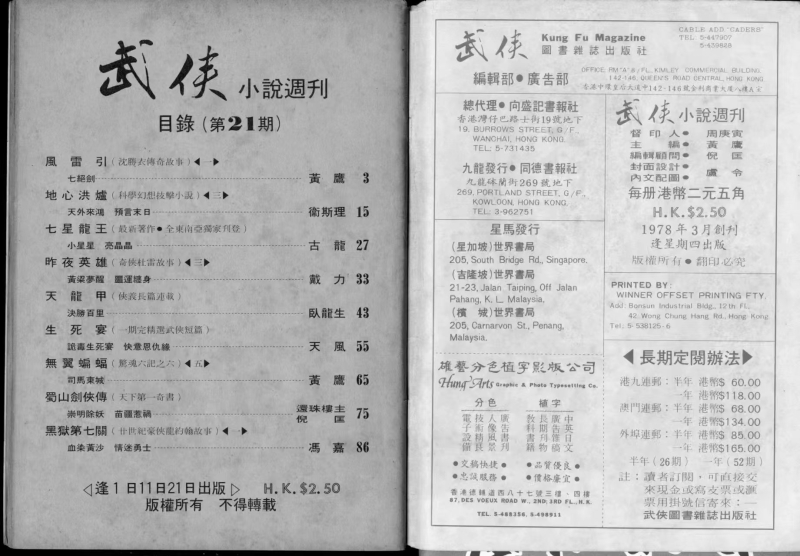 武俠 小說週刊
目錄（第21期）
風雷引（沈勝衣傳奇故事）◀一▶
七絕劍 黃鷹 3
地心洪爐（科學幻想技擊小說）◀三▶
天外來鴻 預言末日 衛斯理 15
七星龍王（最新著作●全東南亞獨家刊登）
小星星 亮晶晶 古龍 27
昨夜英雄（奇俠杜雷故事）◀三▶
黃梁夢醒 噩運纏身 戴力 33
天龍甲（俠義長篇連載）
決勝百里 臥龍生 43
生死宴（一期完精選武俠短篇）
詭毒生死宴 快意恩仇緣 天風 55
無翼蝙蝠（驚魂六記之六）◀五▶
司馬東城 黃鷹 65
蜀山劍俠傳（天下第一奇書）
崇明除妖 苗疆惹禍 還珠樓主 倪匡 75
黑獄第七關（廿世紀豪俠龍約翰故事）◀一▶
血染黃沙 情迷勇士 馮嘉 86
◁逢1日11日21日出版▷ H.K.$2.50
版權所有 不得轉載
武俠 Kung Fu Magazine
圖書雜誌出版社
CABLE ADD "CADERS"
TEL 5-447907
5-439828
編輯部●廣告部
OFFICE, RM "A" 8/FL, KIMLEY COMMERCIAL BUILDING,
142-146, QUEEN'S ROAD CENTRAL, HONG KONG.
香港中環皇后大道中142-146號金利商業大廈八樓A室
總代理●向盛記書報社
香港灣仔巴路士街19號地下
19, BURROWS STREET, G/F.,
WANCHAI, HONG KONG.
TEL: 5-731435
九龍發行●同德書報社
九龍砵蘭街269號地下
269, PORTLAND STREET, G/F.,
KOWLOON, HONG KONG.
TEL: 3-962751
星馬發行
(星加坡)世界書局
205, South Bridge Rd., Singapore.
(吉隆坡)世界書局
21-23, Jalan Taiping, Off Jalan
Pahang, K. L. Malaysia.
(檳城)世界書局
205, Carnarvon St., Penang,
Malaysia.
雄藝分色植字影版公司
Hung Arts Graphic & Photo Typesetting Co.
分色 植字
電技人廣 教長廣中
子術像告 科期告英
設精風書 書刊雜日
備良景刊 籍物稿文
●交稿快捷● ●品質優良●
●忠誠服務● ●價格廉宜●
香港德輔道西八十七號三樓、四樓
87, DES VOEUX ROAD W., 2ND, 3RD FL., H.K.
TEL. 5-485356, 5-498911
武俠 小說週刊
督印人●周庚寅
主編●黃鷹
編輯顧問●倪匡
封面設計●盧令
內文配圖
每册港幣二元五角
H.K.$2.50
1978年3月創刊
逢星期四出版
版權所有●翻印必究
PRINTED BY:
WINNER OFFSET PRINTING FTY.
Add: Bonsun Industrial Bldg., 12th Fl.,
42, Wong Chung Hang Rd., Hong Kong
Tel: 5-538125-6
◀長期定閱辦法▶
港九連郵：半年 港幣$ 60.00
一年 港幣$118.00
澳門連郵：半年 港幣$ 68.00
一年 港幣$134.00
外埠連郵：半年 港幣$ 85.00
一年 港幣$168.00
半年(26期) 一年(52期)
註：讀者訂閱，可直接交
來現金或寫支票或滙
票用掛號信寄來：—
武俠圖書雜誌出版社